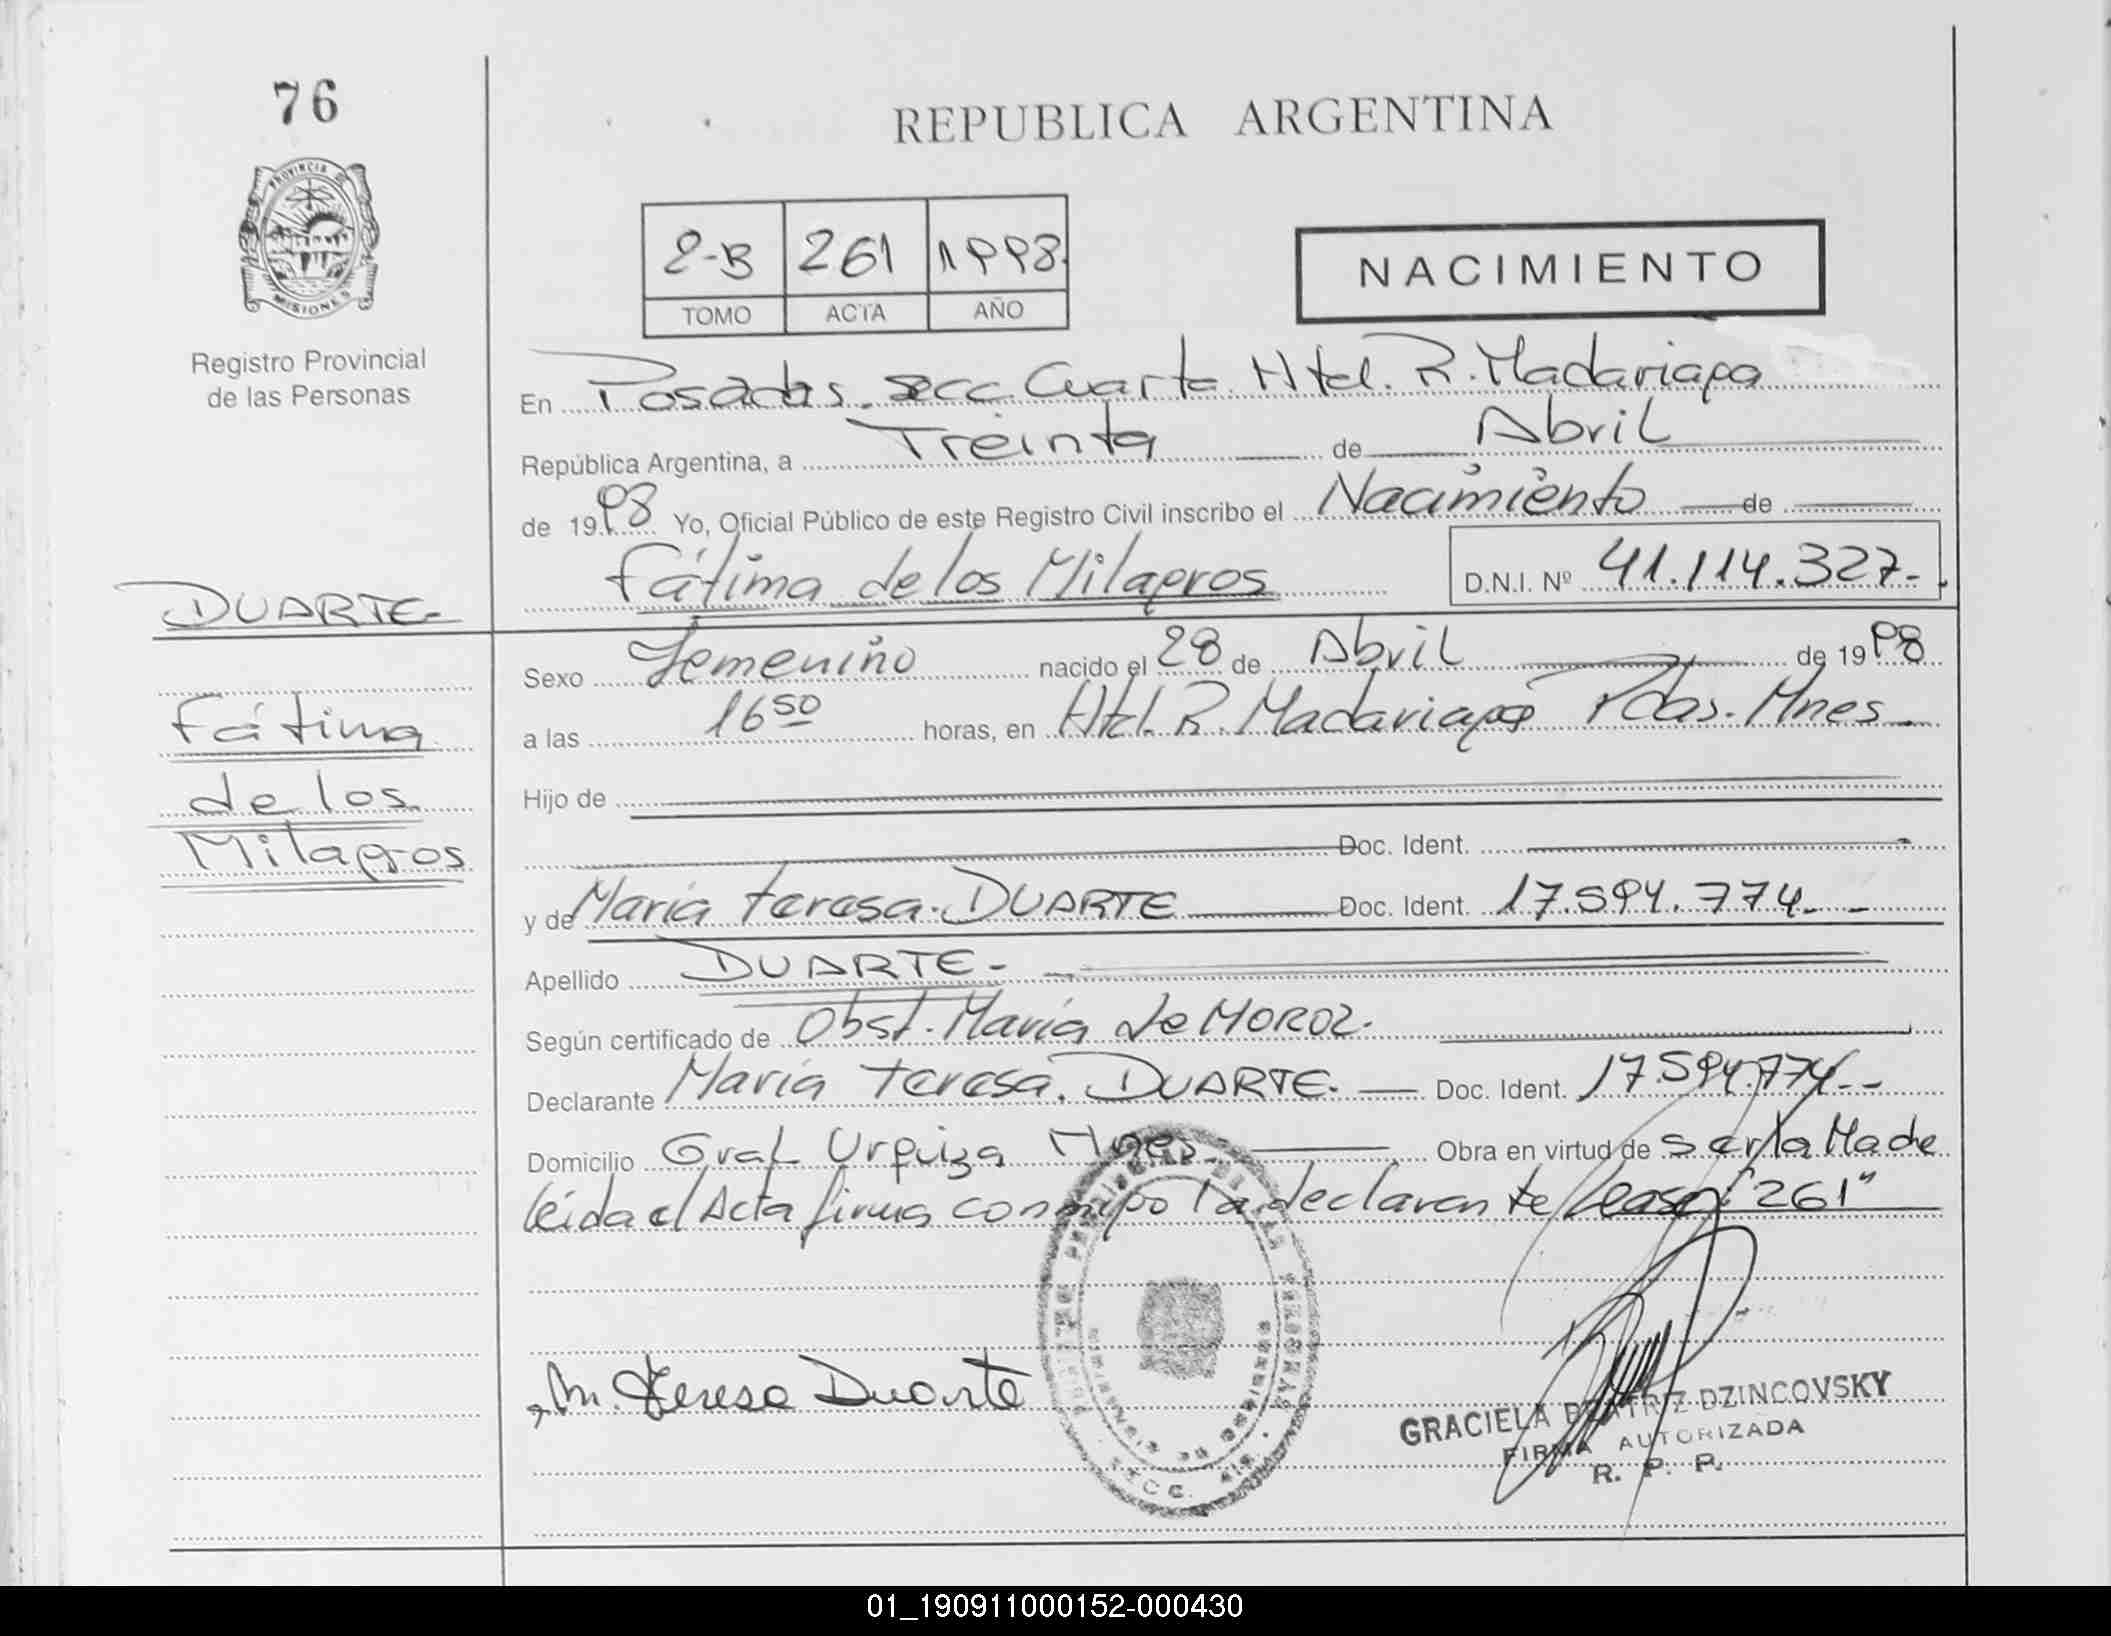 76
REPUBLICA ARGENTINA
PROVINCIA DE
MISIONES
Registro Provincial
de las Personas
2-B 261 1998.
TOMO ACTA AÑO
NACIMIENTO
En Posadas. secc Cuarta Htal. R. Madariaga
República Argentina, a Treinta de Abril
de 1998 Yo, Oficial Público de este Registro Civil inscribo el Nacimiento de
Fátima de los Milagros D.N.I. Nº 41.114.327-.
DUARTE-
Fátima
de los
Milagros
Sexo Femenino nacido el 28 de Abril de 1998
a las 16 50 horas, en Htal. R. Madariaga Pdas. Mnes
Hijo de
Doc. Ident.
y de María teresa. DUARTE Doc. Ident. 17.594.774--
Apellido DUARTE-
Según certificado de Obst. María de MOROZ.
Declarante María teresa. DUARTE. Doc. Ident. 17.594.774--
Domicilio Gral Urquiza Mnes. Obra en virtud de ser la Madre
leida el Acta firma conmigo la declarante lease "261"
M. Teresa Duarte
GRACIELA BEATRIZ DZINCOVSKY
FIRMA AUTORIZADA
R. P. P.
01_190911000152-000430